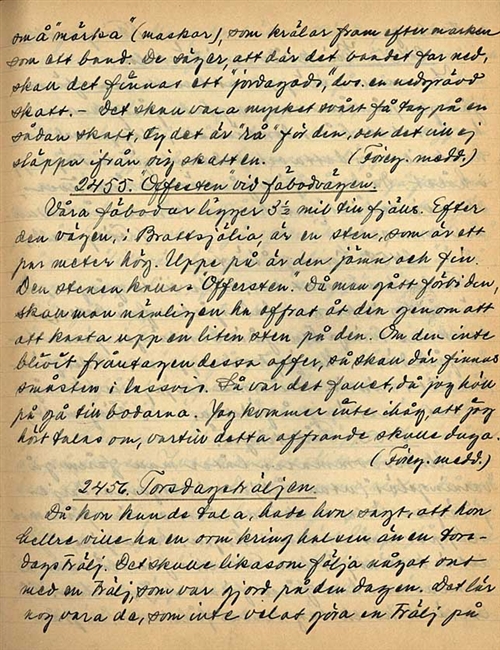 små "märka" (maskar), som krälar fram efter marken
som ett band. De säger, att där det bandet far ned,
skall det finnas ett "jordagods", dvs. en nedgrävd
skatt. – Det skall vara mycket svårt få tag på en
sådan skatt, ty det är "rå" för den, och det vill ej
släppa ifrån sig skatten. (Föreg. medd.)
2455. "Offersten" vid fäbodvägen.
Våra fäbodar ligger 3½ mil till fjälls. Efter
den vägen, i Brattsjölia, är en sten, som är ett
par meter hög. Uppe på är den jämn och fin.
Den stenen kallas "Offersten." Då man gått förbi den,
skall man nämligen ha offrat åt den genom att
att kasta upp en liten sten på den. Om den inte
blivit fråntagen dessa offer, så skall där finnas
småsten i lassvis. Så var det fallet, då jag höll
på gå till bodarna. Jag kommer inte ihåg, att jag
hört talas om, vartill detta offrande skulle duga.
(Föreg. medd.)
2456. Torsdagsträljen.
Då kon kunde tala, hade hon sagt, att hon
hellre ville ha en orm kring halsen än en tors-
dagsträlj. Det skulle likasom följa något ont
med en trälj, som var gjord på den dagen. Det lär
nog vara de, som inte velat göra en trälj på